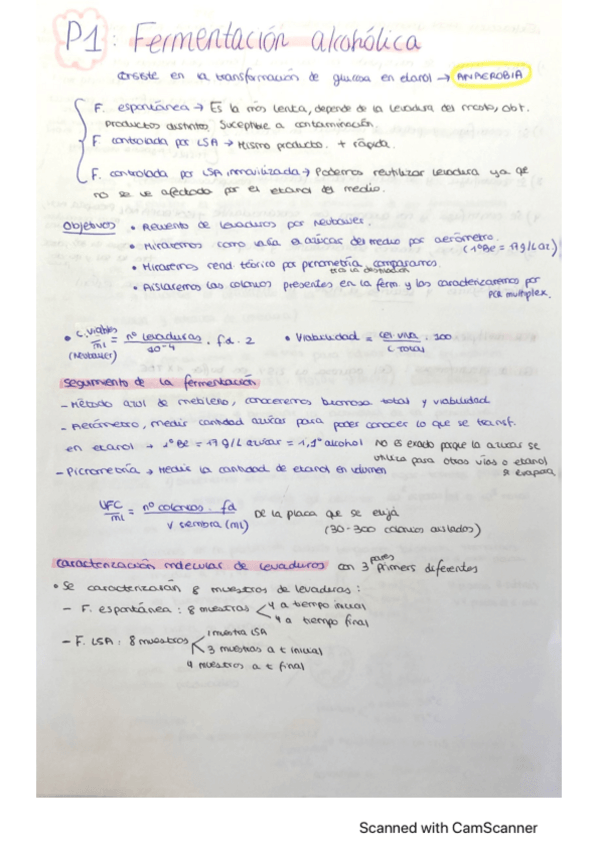 P1: Fermentación alcohólica
Consiste en la transformación de glucosa en etanol → ANAEROBIA
F. espontánea → Es la más lenta, depende de la levadura del mosto, obt.
productos distintos. Suceptible a contaminación.
F. controlada por LSA → Mismo producto. + rápida.
F. controlada por LSA inmovilizada → Podemos reutilizar levadura ya que
no se ve afectado por el etanol del medio.
Objetivos • Recuento de levaduras por Neubauer.
• Miraremos como varía el azúcar del medio por aerómetro. (1ºBe = 17g/L az)
• Miraremos rend. teórico por picnometría, comparamos.
tras la destilación
• Aislaremos las colonias presentes en la ferm y las caracterizaremos por
PCR multiplex.
• C. viables/ml = nº levaduras/10-4 · fd · 2 • Viabilidad = cel viva/c total · 100
(Neubauer)
seguimiento de la fermentación
- Método azul de metileno, conoceremos biomasa total y viabilidad
- Aerómetro, medir cantidad azúcar para poder conocer lo que se transf.
en etanol → 1ºBe = 17g/L azúcar = 1,1º alcohol No es exacto porque la azúcar se
utiliza para otras vías o etanol
se evapora
- Picnometría → Medir la cantidad de etanol en volumen
UFC/ml = nº colonias · fd/V siembra (ml) De la placa que se elija
(30-300 colonias aisladas)
caracterización molecular de levaduras con 3 pares primers diferentes
• Se caracterizarán 8 muestras de levaduras:
- F. espontánea: 8 muestras < 4 a tiempo inicial
4 a tiempo final
- F. LSA: 8 muestras < 1 muestra LSA
3 muestras a t inicial
4 muestras a t final
Scanned with CamScanner